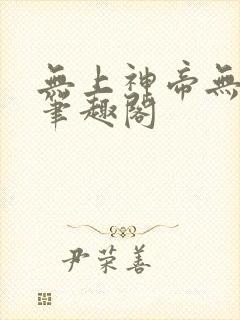 無上神帝無
筆趣閣
尹荣善